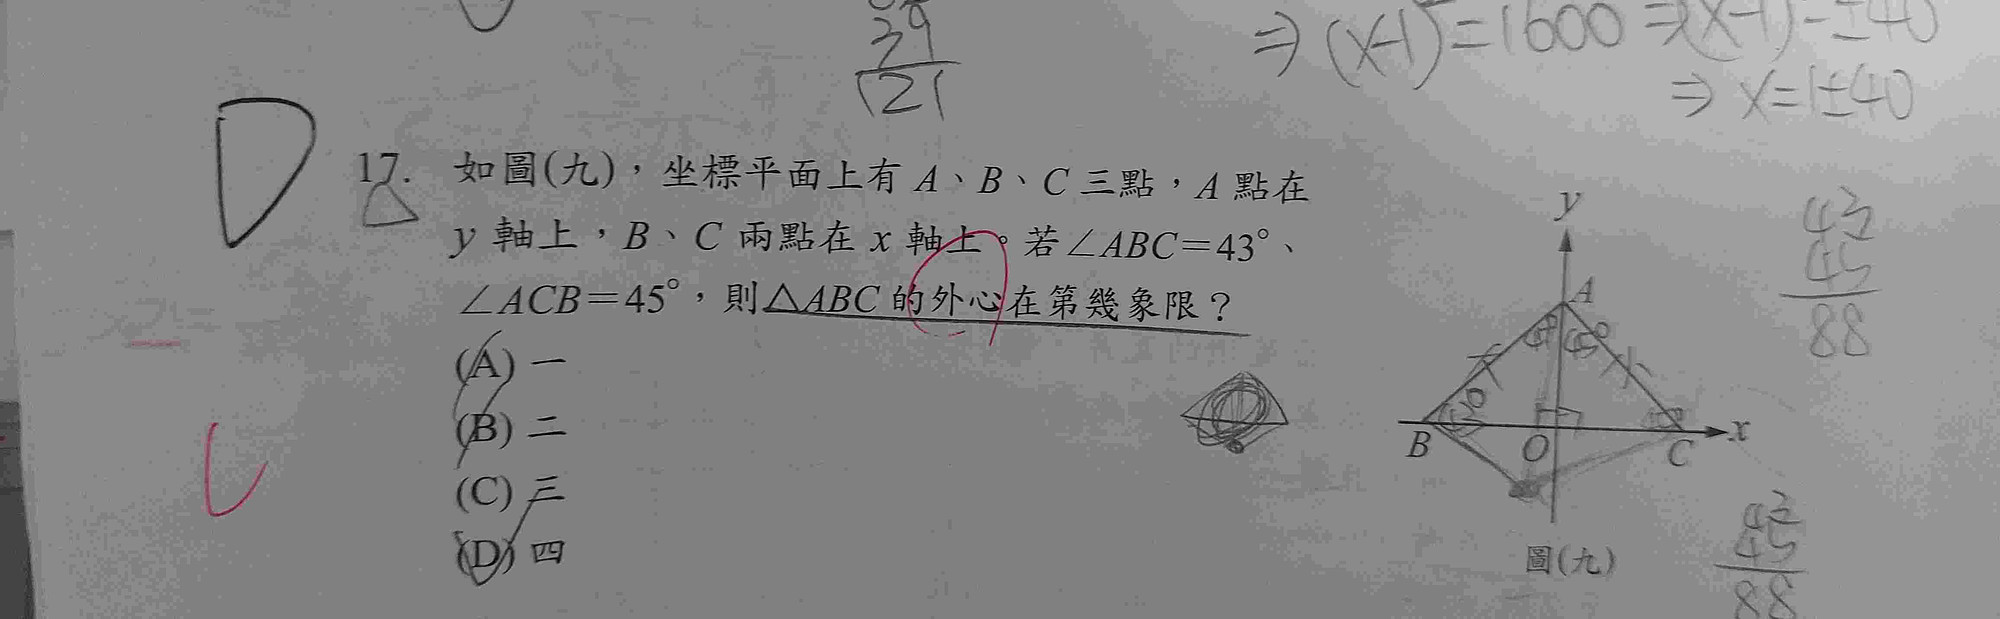 39
121
⇒(x-1)²=1600⇒(x-1)=±40
⇒x=1±40
D
17. 如圖(九)，坐標平面上有 A、B、C 三點，A 點在
y 軸上，B、C 兩點在 x 軸上。若∠ABC=43°、
∠ACB=45°，則△ABC 的外心在第幾象限？
(A) 一
(B) 二
(C) 三
(D) 四
y
A
45°
43°
B
O
C
x
圖(九)
43
45
88
43
45
88